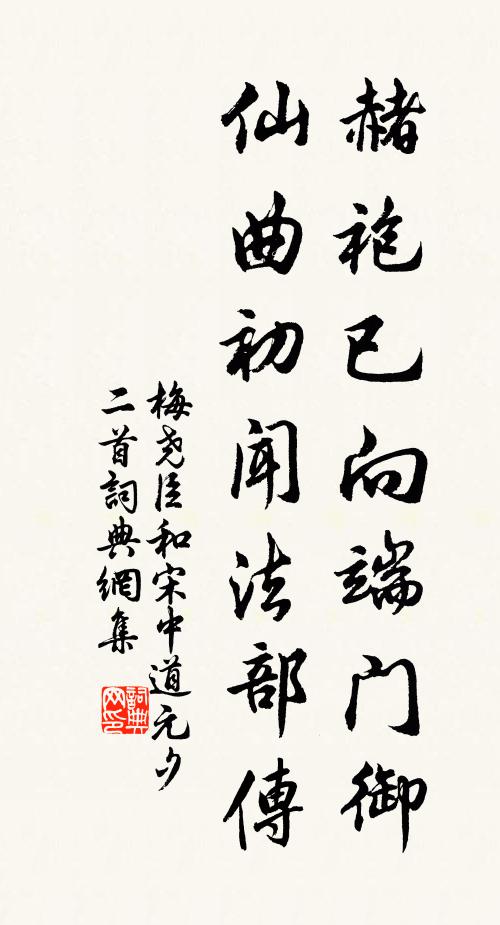 赭袍已向端門御
仙曲初聞法部傳
梅堯臣和宋中道元夕
二首詞典網集
詞典網印